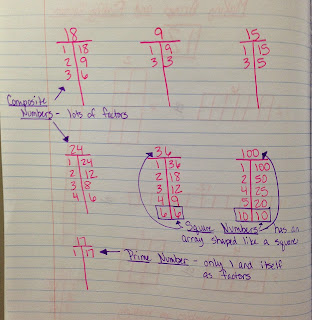 18 9 15
1 18 1 9 1 15
2 9 3 3 3 5
3 6
Composite
Numbers - lots of factors
24 36 100
1 24 1 36 1 100
2 12 2 18 2 50
3 8 3 12 4 25
4 6 4 9 5 20
6 6 10 10
Square Numbers - has an
array shaped like a square
17
1 17
Prime Number - only 1 and itself
as factors